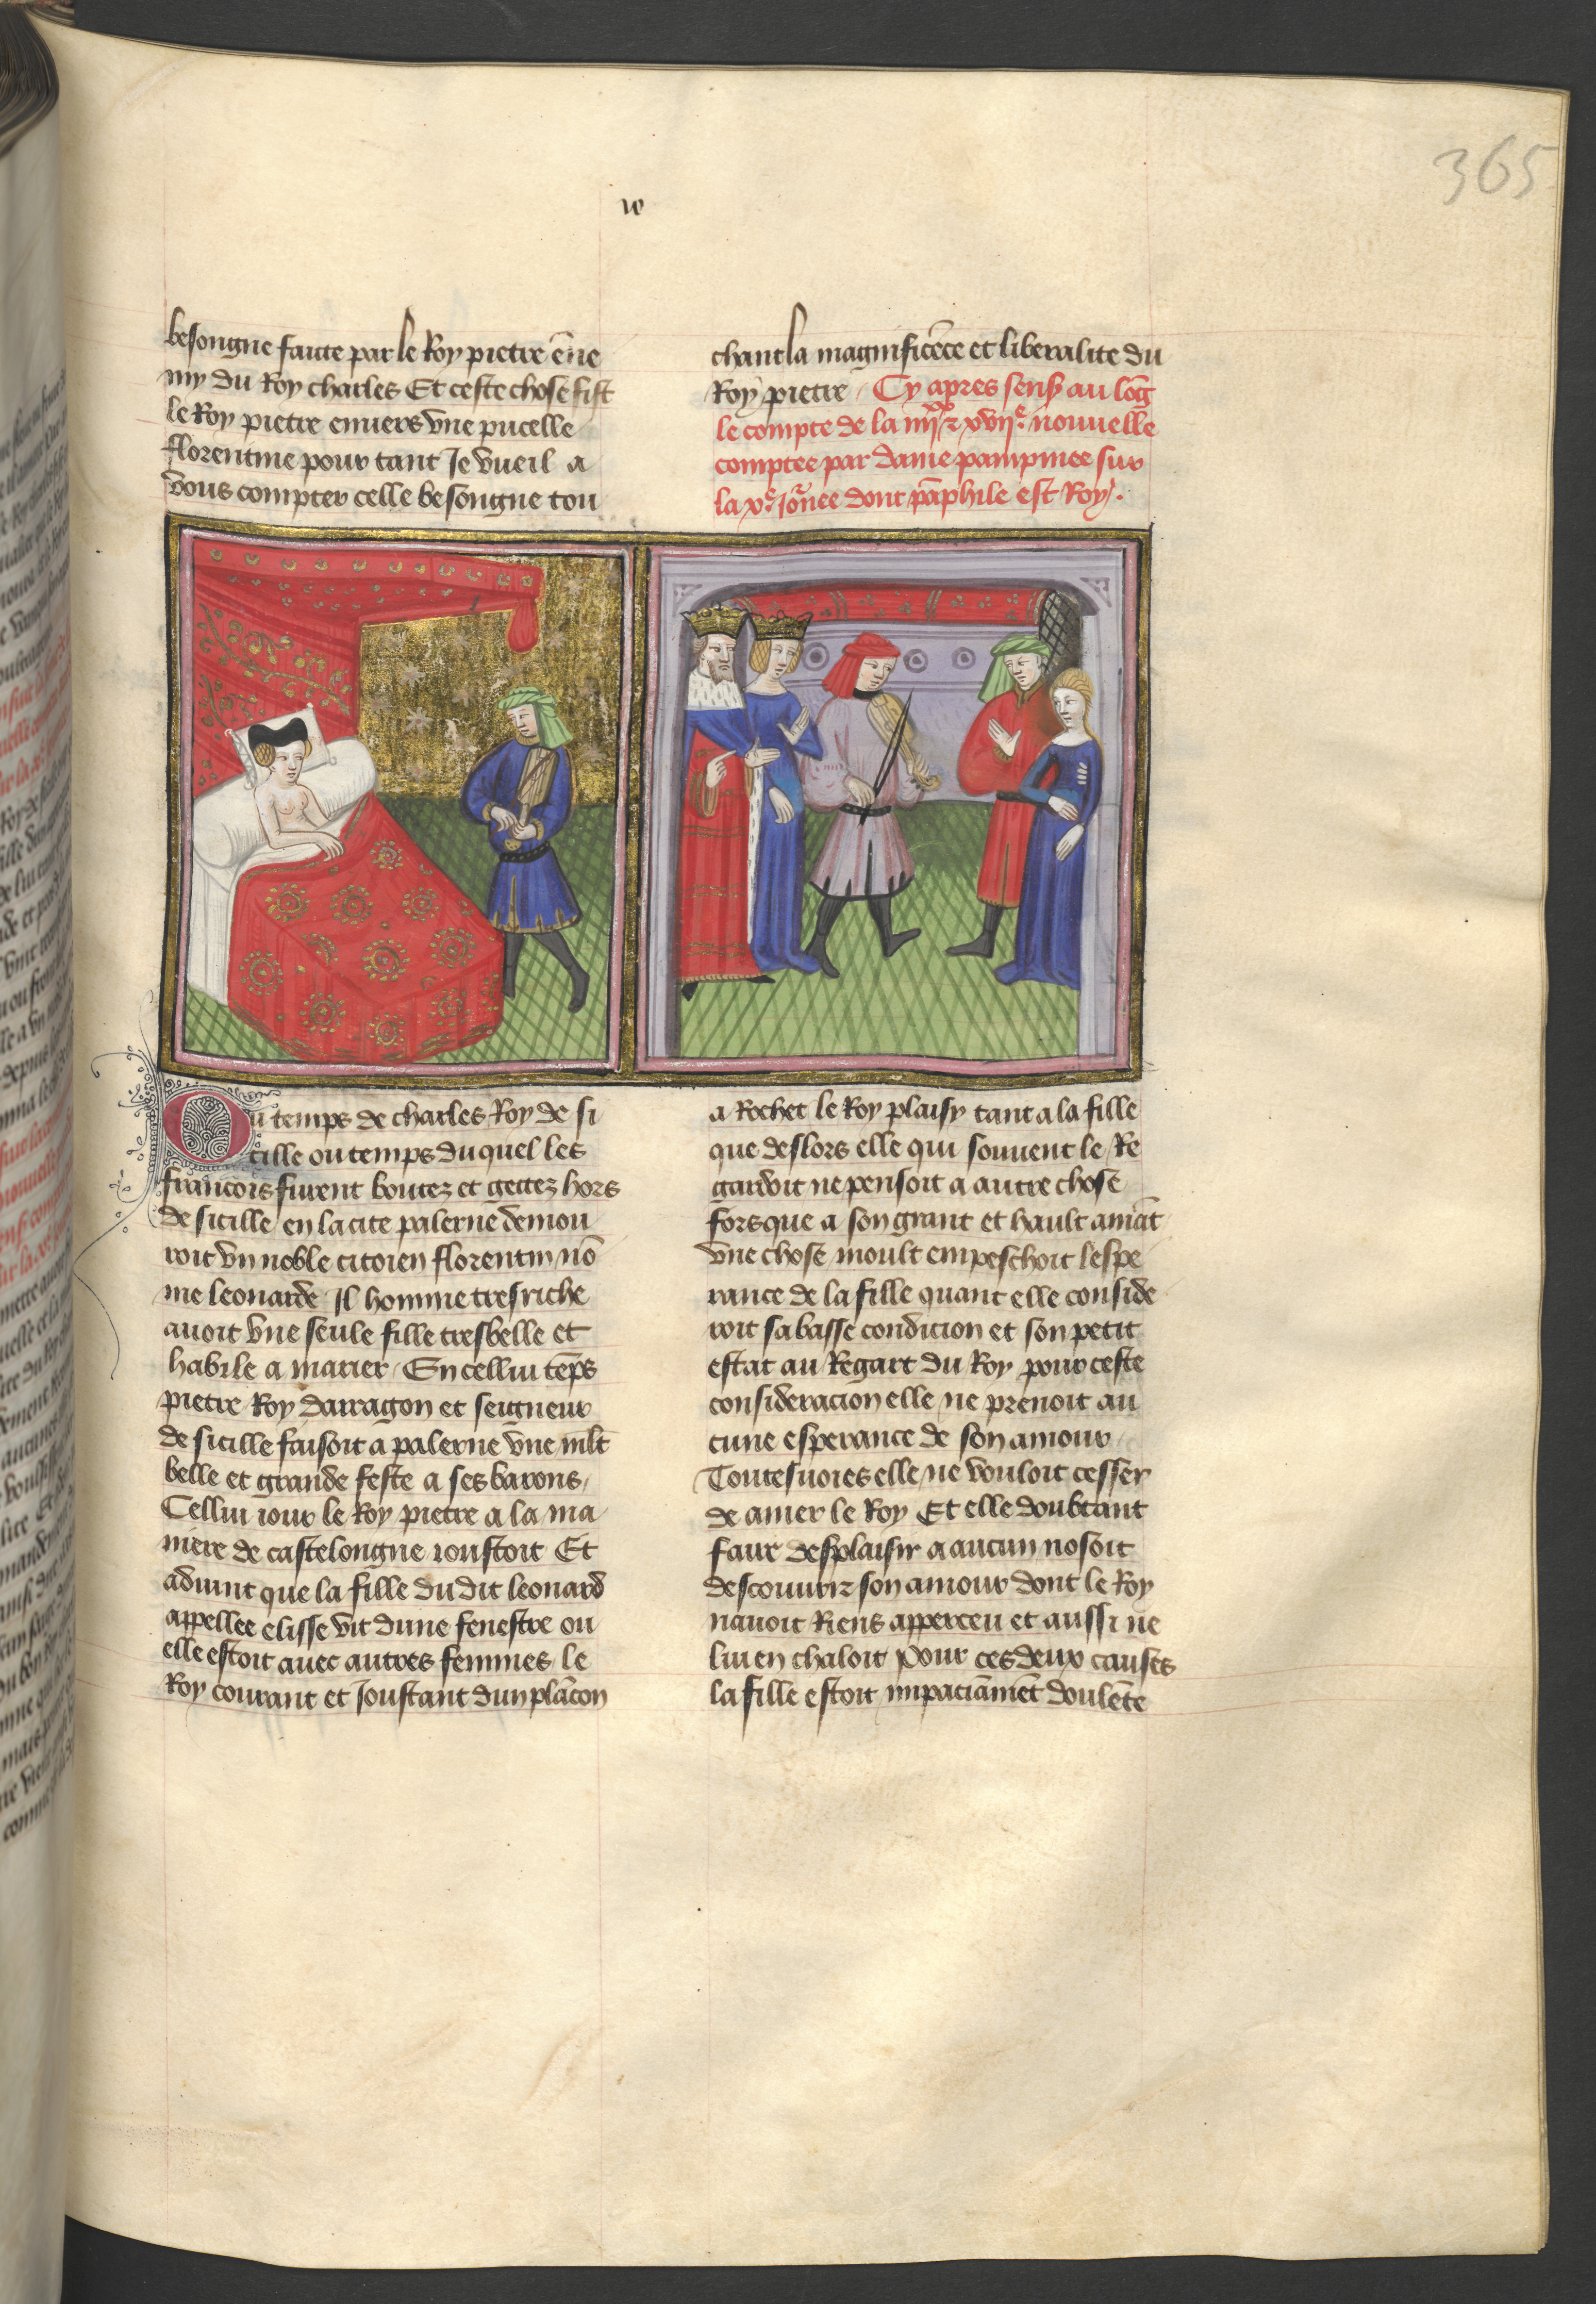 365
w
besongne faicte par le Roy pietre ēne
my du Roy charles Et ceste chose fist
le Roy pietre enuers vne pucelle
florentine pour tant Je vueil a
vous compter celle besongne tou
chant la magnificēce et liberalite du
Roy pietre Cy apres sensͥ au lōg
le compte de la iiijˣˣ ⁊ xvijᵉ nouuelle
comptee par dame pampinee sur
la xᵉ iōnee dont pāphile est Roy.
Ou temps de charles Roy de si
cille ou temps du quel les
francois furent boutez et gettez hors
de sicille en la cite palerne demou
roit vn noble citoien florentin nō
me leonarde Il homme tresriche
auoit vne seule fille tresbelle et
habile a marier En cellui tēps
pietre Roy darragon et seigneur
de sicille faisoit a palerne vne mlt
belle et grande feste a ses barons
Cellui iour le Roy pietre a la ma
niere de castelongne ioustoit Et
aduint que la fille du dit leonard
appellee elisse vit dune fenestre ou
elle estoit auec autres femmes le
Roy courant et Joustant dun plācon
a Rochet le Roy plaisy tant a la fille
que deslors elle qui souuent le Re
gardoit ne pensoit a autre chose
fors que a son grant et hault amāt
vne chose moult empeschoit lespe
rance de la fille quant elle conside
roit sa basse condicion et son petit
estat au Regart du Roy pour ceste
consideracion elle ne prenoit au
cune esperance de son amour
Toutesuoies elle ne vouloit cesser
de amer le Roy Et elle doubtant
faire desplaisir a aucun nosoit
descouurir son amour dont le Roy
nauoit Riens apperceu et aussi ne
lui en chaloit Pour ces deux causes
la fille estoit impaciāmēt doulēte